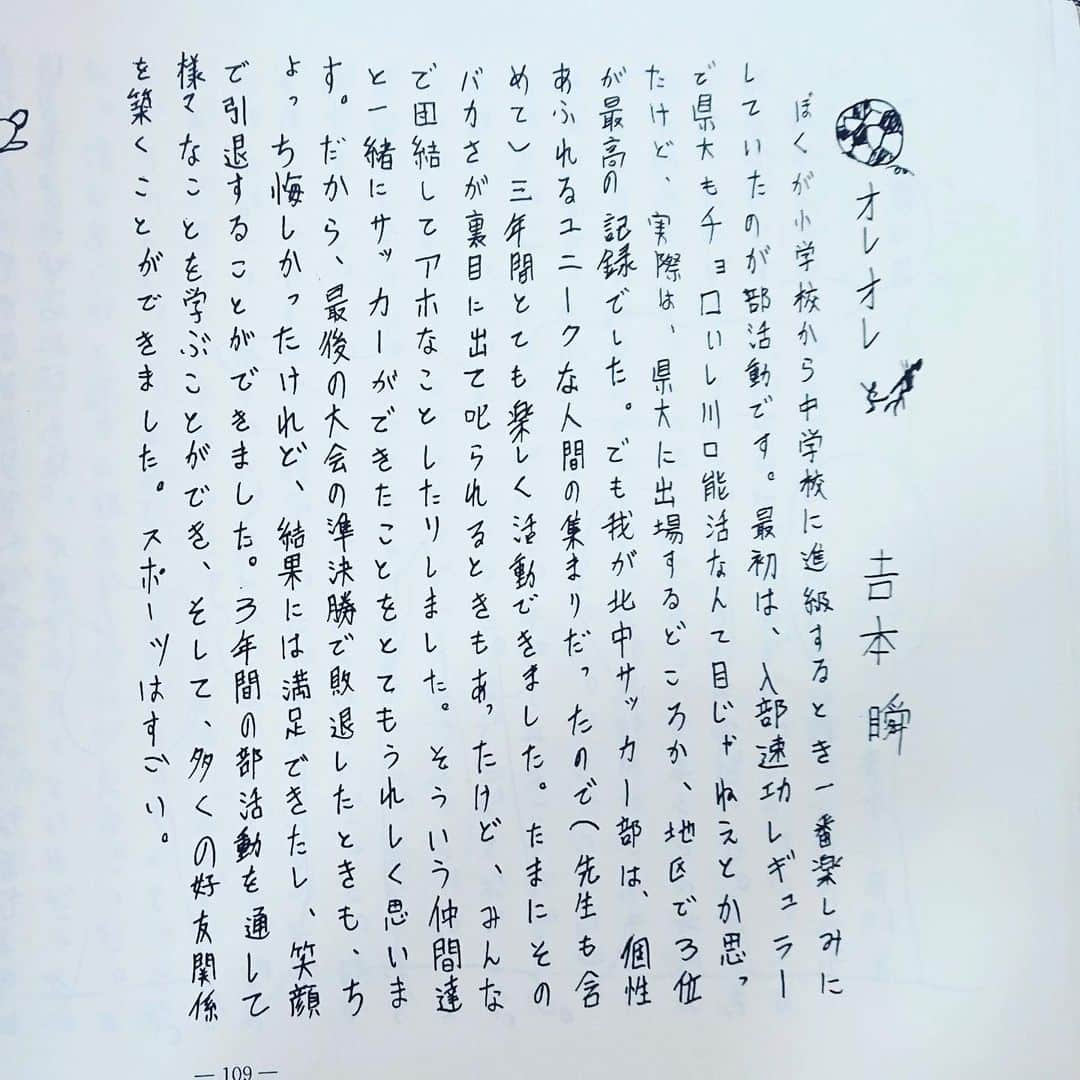 オレオレ　吉本 瞬
ぼくが小学校から中学校に進級するとき一番楽しみに
していたのが部活動です。最初は、入部速功レギュラー
で県大もチョロいし川口能活なんて目じゃねえとか思っ
たけど、実際は、県大に出場するどころか、地区で3位
が最高の記録でした。でも我が北中サッカー部は、個性
あふれるユニークな人間の集まりだったので(先生も含
めて)三年間とても楽しく活動できました。たまにその
バカさが裏目に出て叱られるときもあったけど、みんな
で団結してアホなことしたりしました。そういう仲間達
と一緒にサッカーができたことをとてもうれしく思いま
す。だから、最後の大会の準決勝で敗退したときも、ち
ょっち悔しかったけれど、結果には満足できたし、笑顔
で引退することができました。3年間の部活動を通して
様々なことを学ぶことができ、そして、多くの好友関係
を築くことができました。スポーツはすごい。
— 109 —